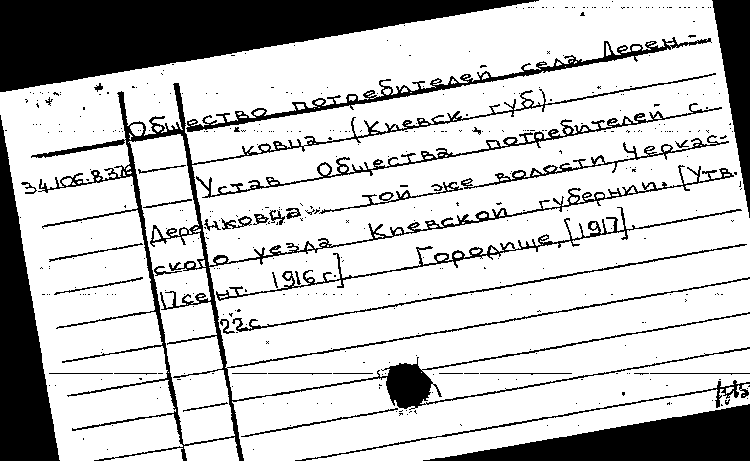 Общество потребителей села Дерен-
ковца. (Киевск. губ).
34.106.8.376.
Устав Общества потребителей с.
Деренковца той же волости, Черкас-
ского уезда Киевской губернии. [Утв.
17 сент. 1916 г.]. Городище, [1917].
22 с.